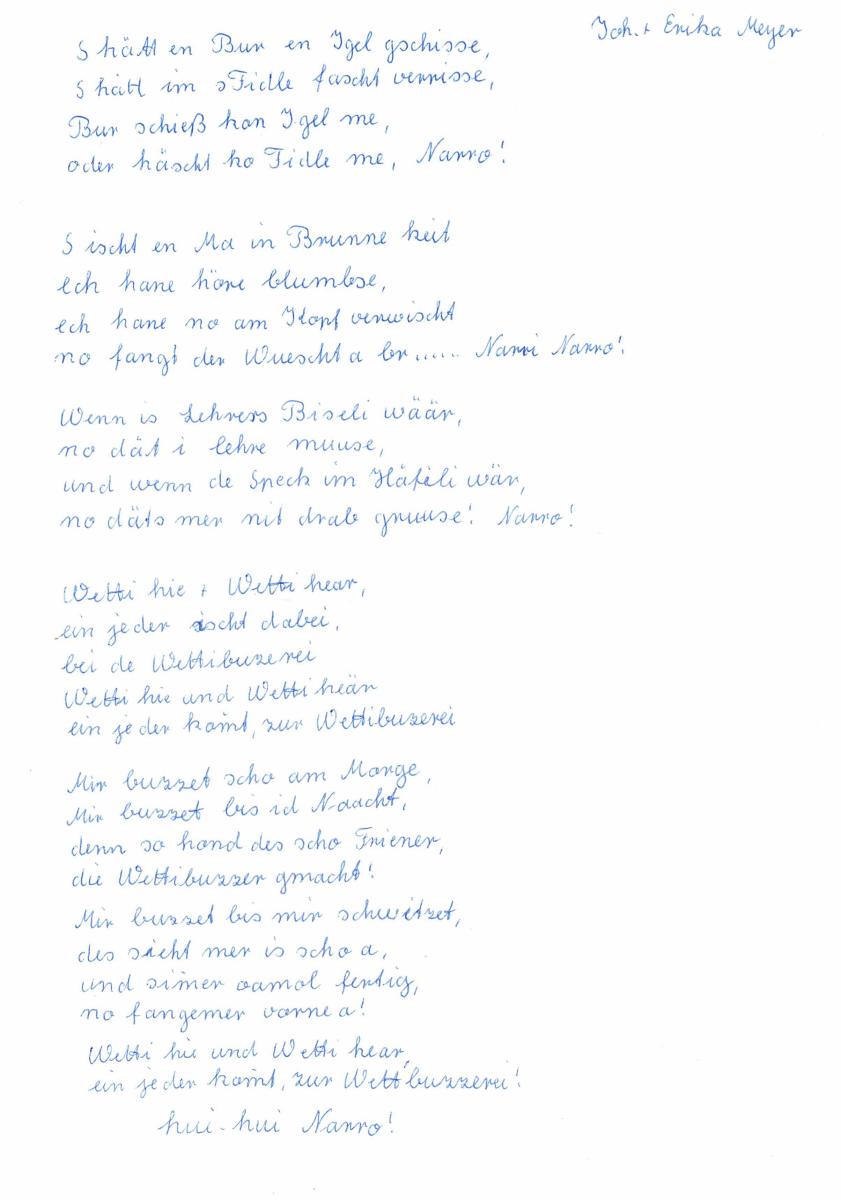 Joh. + Erika Meyer
S hätt en Bur en Igel gschisse,
S hätt im s Fidle fascht verrisse,
Bur schieß kon Igel me,
oder häscht ko Fidle me, Narro!
S ischt en Ma in Brunne keit
Ech hane höre blumbse,
ech hane no am Kopf verwischt
no fangt der Wuescht a br...... Narri Narro!
Wenn is Lehrers Biseli wäär,
no dät i lehre muuse,
und wenn de Speck im Häfeli wär,
no däts mer nit drab gruuse! Narro!
Wetti hie + Wetti hear,
ein jeder ischt dabei,
bei de Wettibuzerei
Wetti hie und Wetti heär
ein jeder komt, zur Wettibuzerei
Mir buzzet scho am Morge,
Mir buzzet bis id Naacht,
denn so hond des scho Friener,
die Wettibuzzer gmacht!
Mir buzzet bis mir schwitzet,
des sieht mer is scho a,
und simer oamol fertig,
no fangemer vorne a!
Wetti hie und Wetti hear,
ein jeder komt, zur Wettbuzzerei!
hui-hui Narro!